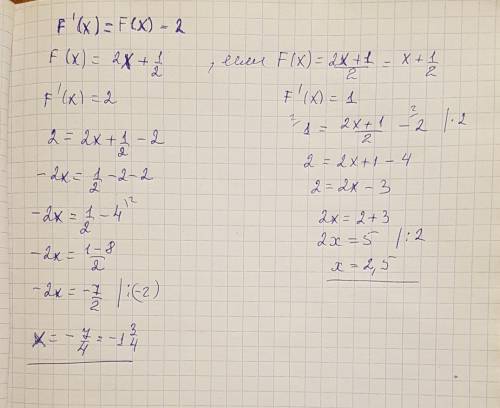 F'(x) = F(x) - 2
F(x) = 2x + 1/2
F'(x) = 2
2 = 2x + 1/2 - 2
-2x = 1/2 - 2 - 2
-2x = 1/2 - 4 ⁾²
-2x = (1-8)/2
-2x = -7/2 | :(-2)
x = -7/4 = -1 3/4
, если F(x) = (2x+1)/2 = x + 1/2
F'(x) = 1
²⁾1 = (2x+1)/2 - ²⁾2 | ·2
2 = 2x + 1 - 4
2 = 2x - 3
2x = 2 + 3
2x = 5 | :2
x = 2,5